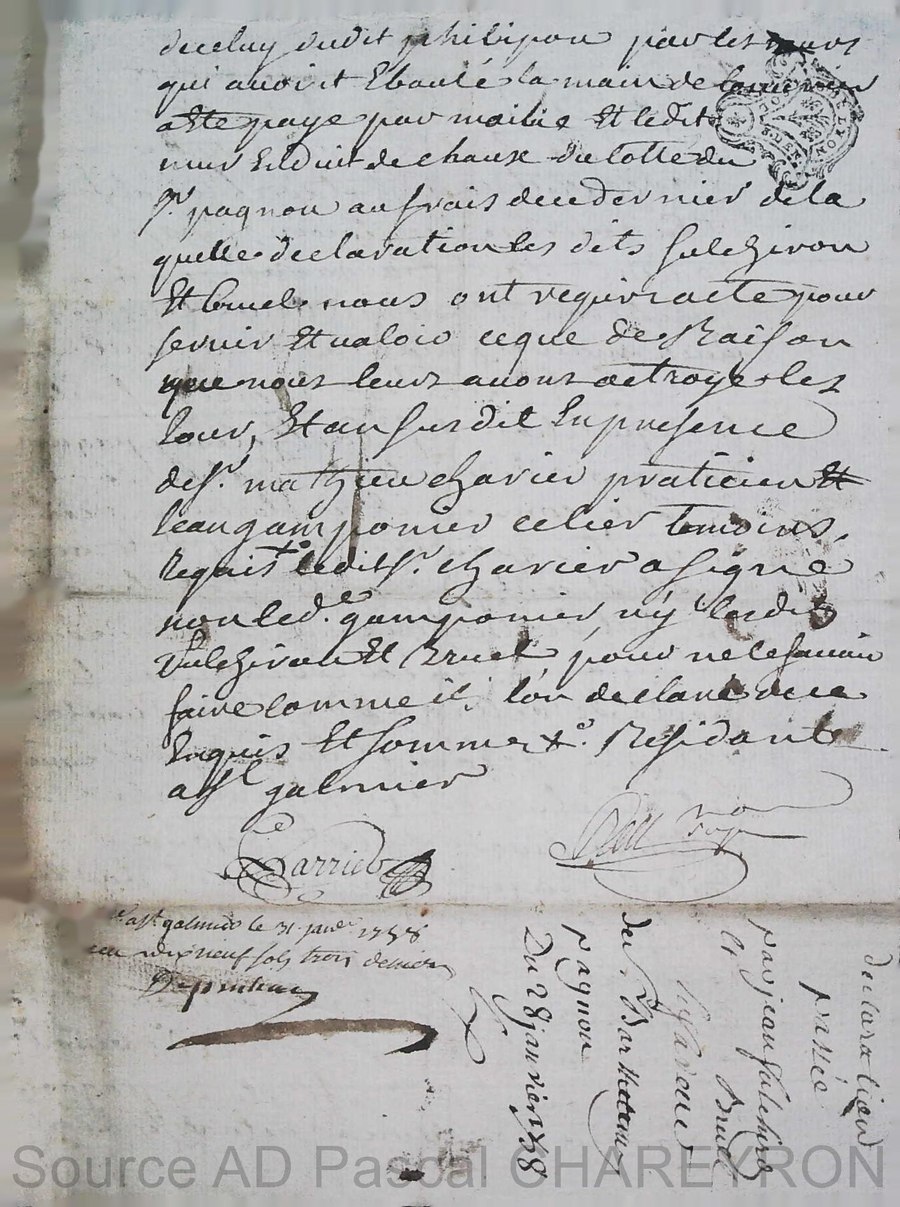 de celuy dudit philipon par les murs
qui avoit Eboulé la main de
a Ete paye par moitie Et ledit
mur Enduit de chaux du cotté du
Sr. pagnon au frais de ce dernier de la
quelle declaration les dits Fulchiron
Et Bruel nous ont requis acte pour
servir Et valoir ce que de Raison
que nous leurs avons octroye les
jour, Et an susdit En presence
de Sr. mathieu charier praticien Et
jean gamponier celier temoins,
Requis ledit Sr. charier a signe
non led. gamponier ny lesdits
Fulchiron Et Bruel pour ne le savoir
faire comme il l'on declare de ce
Enquis Et sommez &c. Residants
a St galmier
Carrier
a St galmier le 31 janvr 1758
dix neuf sols trois deniers
declaration
passée
par jean fulchiron
et Bruel
au Sr Barthelemy
pagnon
Du 28 janvier 1758
Source AD Pascal CHAREYRON